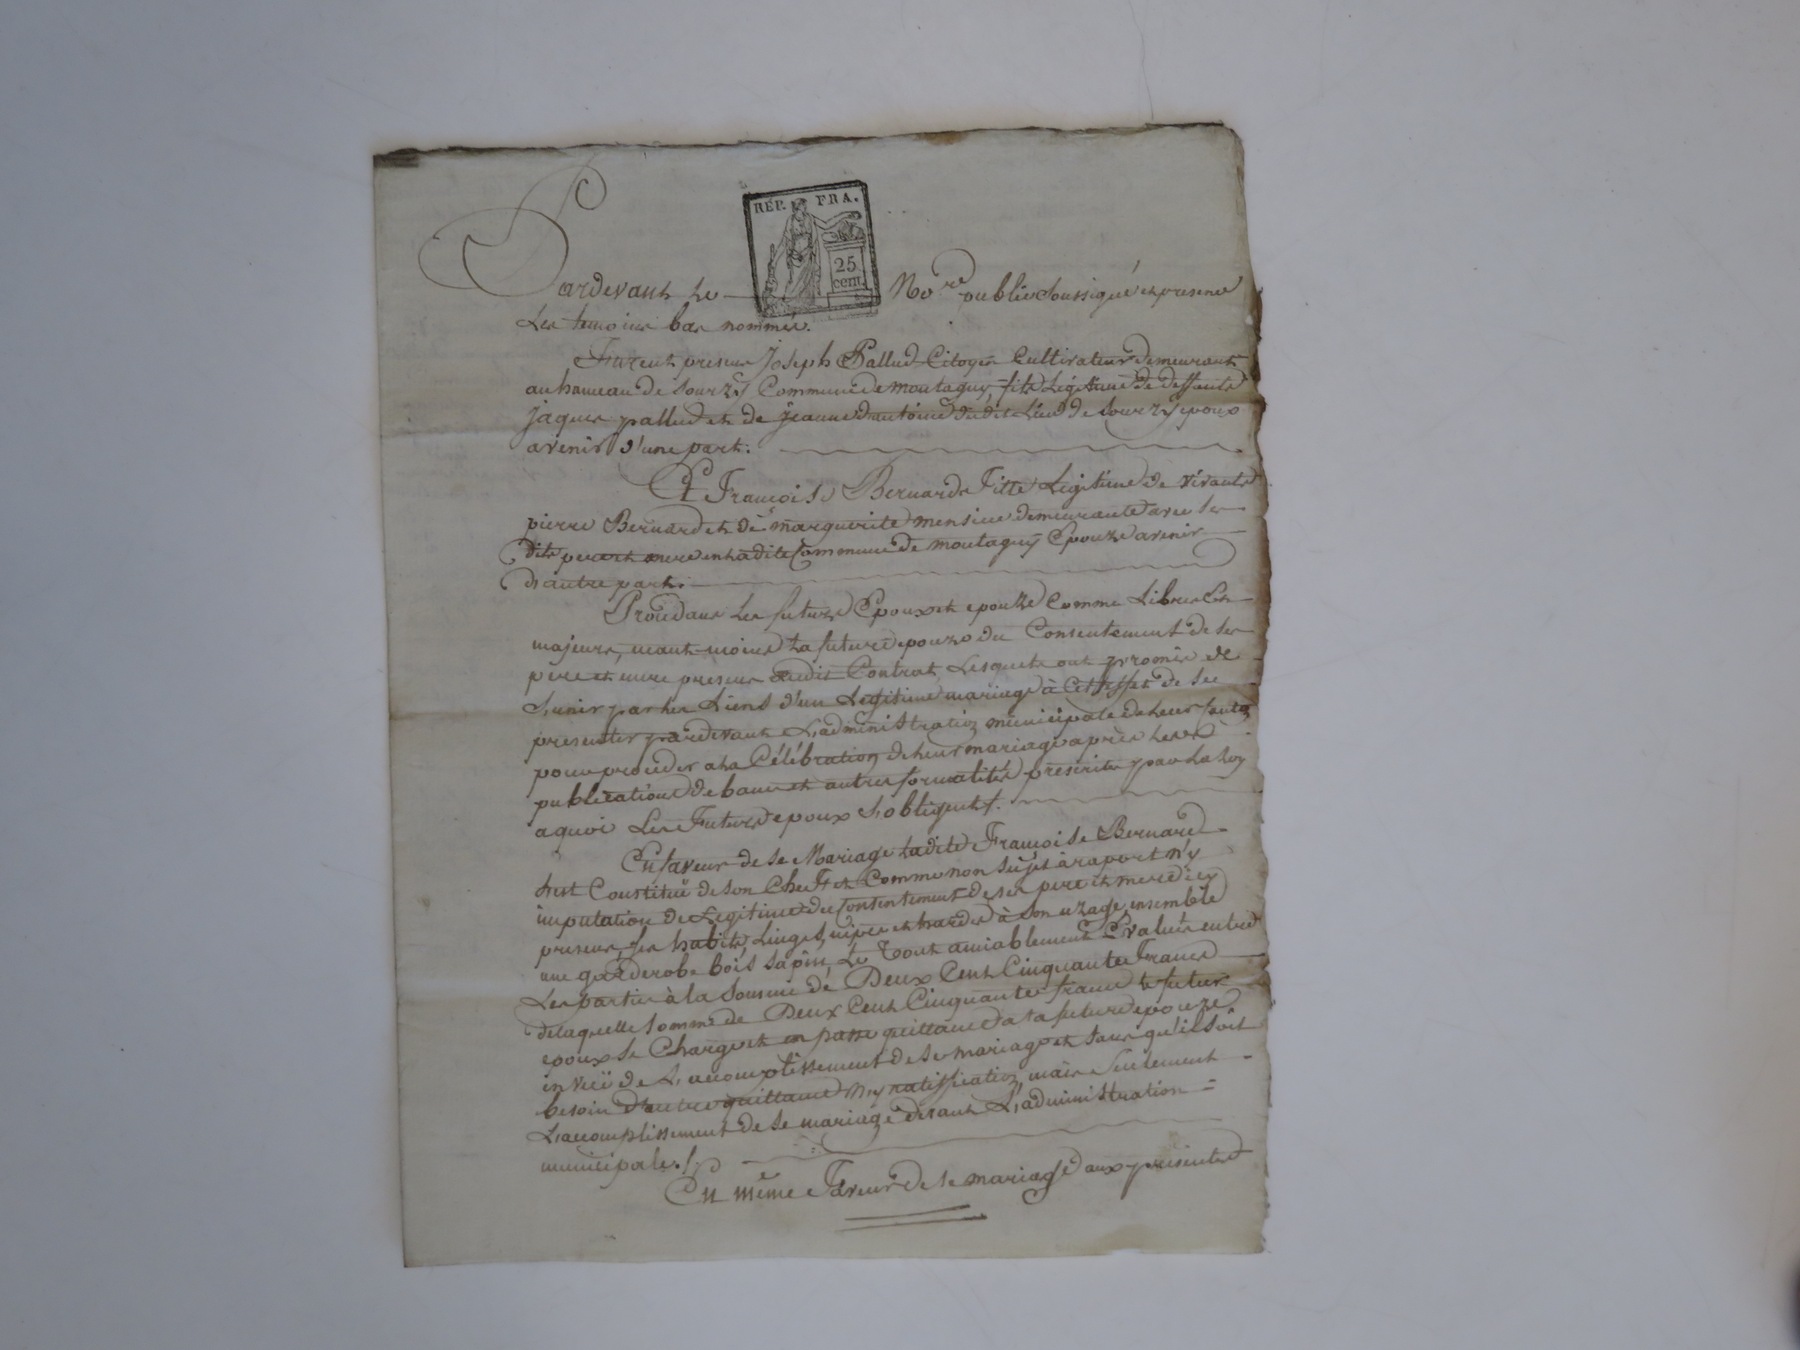 REP. FRA.
25
cent.
Pardevant Le No.re public soussigné et presence
Les temoins bas nommés.
Furent presens Joseph Pallud Citoyen Cultivateur demeurant
au hameau de Sourzy Commune de montaguy, fils Légitime de deffunts
jaques pallud et de jeanne dantoine dudit Lieu de Sourzy epoux
avenir d'une part:
Et Françoise Bernard Fille Légitime de vivants
pierre Bernard et de marguerite mensine demeurante avec ses
dits pere et mere en ladite Commune de montaguy Epouze avenir
d'autre part.
Procedans Les futurs Epoux et epouze Comme Libres Et
majeurs, neant-moins La future epouze du Consentement de ses
pere et mere presens audit Contrat, Lesquels ont promis de
S'unir par Les Liens d'un Légitime mariage à Cet effet de se
presenter pardevant L'administration municipale de Leur Canton
pour proceder a La Célébration de Leur mariage après Les
publications de bans et autres formalités prescrites par La Loy
a quoi Les Futurs epoux S'obligent.
En faveur de se Mariage Ladite Françoise Bernard
s'est Constitué de son Cheff et Comme non sujet à raport n'y
imputation de Légitime du Consentement de ses pere et mere d'icy
presens, ses habits, Linges, nipes et hardes à son uzage, ensemble
une garderobe bois sapin, Le Tout amiablement Evalués entre
Les parties à la Somme de Deux Cent Cinquante Francs
de laquelle Somme de Deux Cent Cinquante francs le futur
epoux se Charge et en passe quittance a la future epouze
en vuë de L'acomplissement de se mariage et sans qu'il soit
besoin d'autre quittance n'y ratiffication, mais Seulement
L'acomplissement de se mariage devant L'administration =
municipale.
En même Faveur de se mariage aux presentes